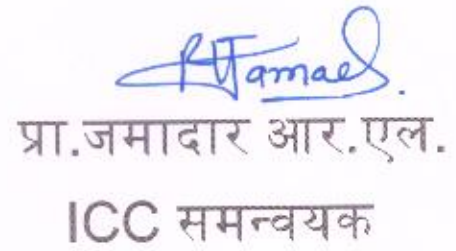 प्रा.जमादार आर.एल.
ICC समन्वयक